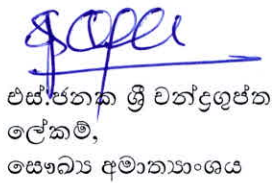 එස්.ජනක ශ්‍රී චන්ද්‍රගුප්ත
ලේකම්,
සෞඛ්‍ය අමාත්‍යාංශය